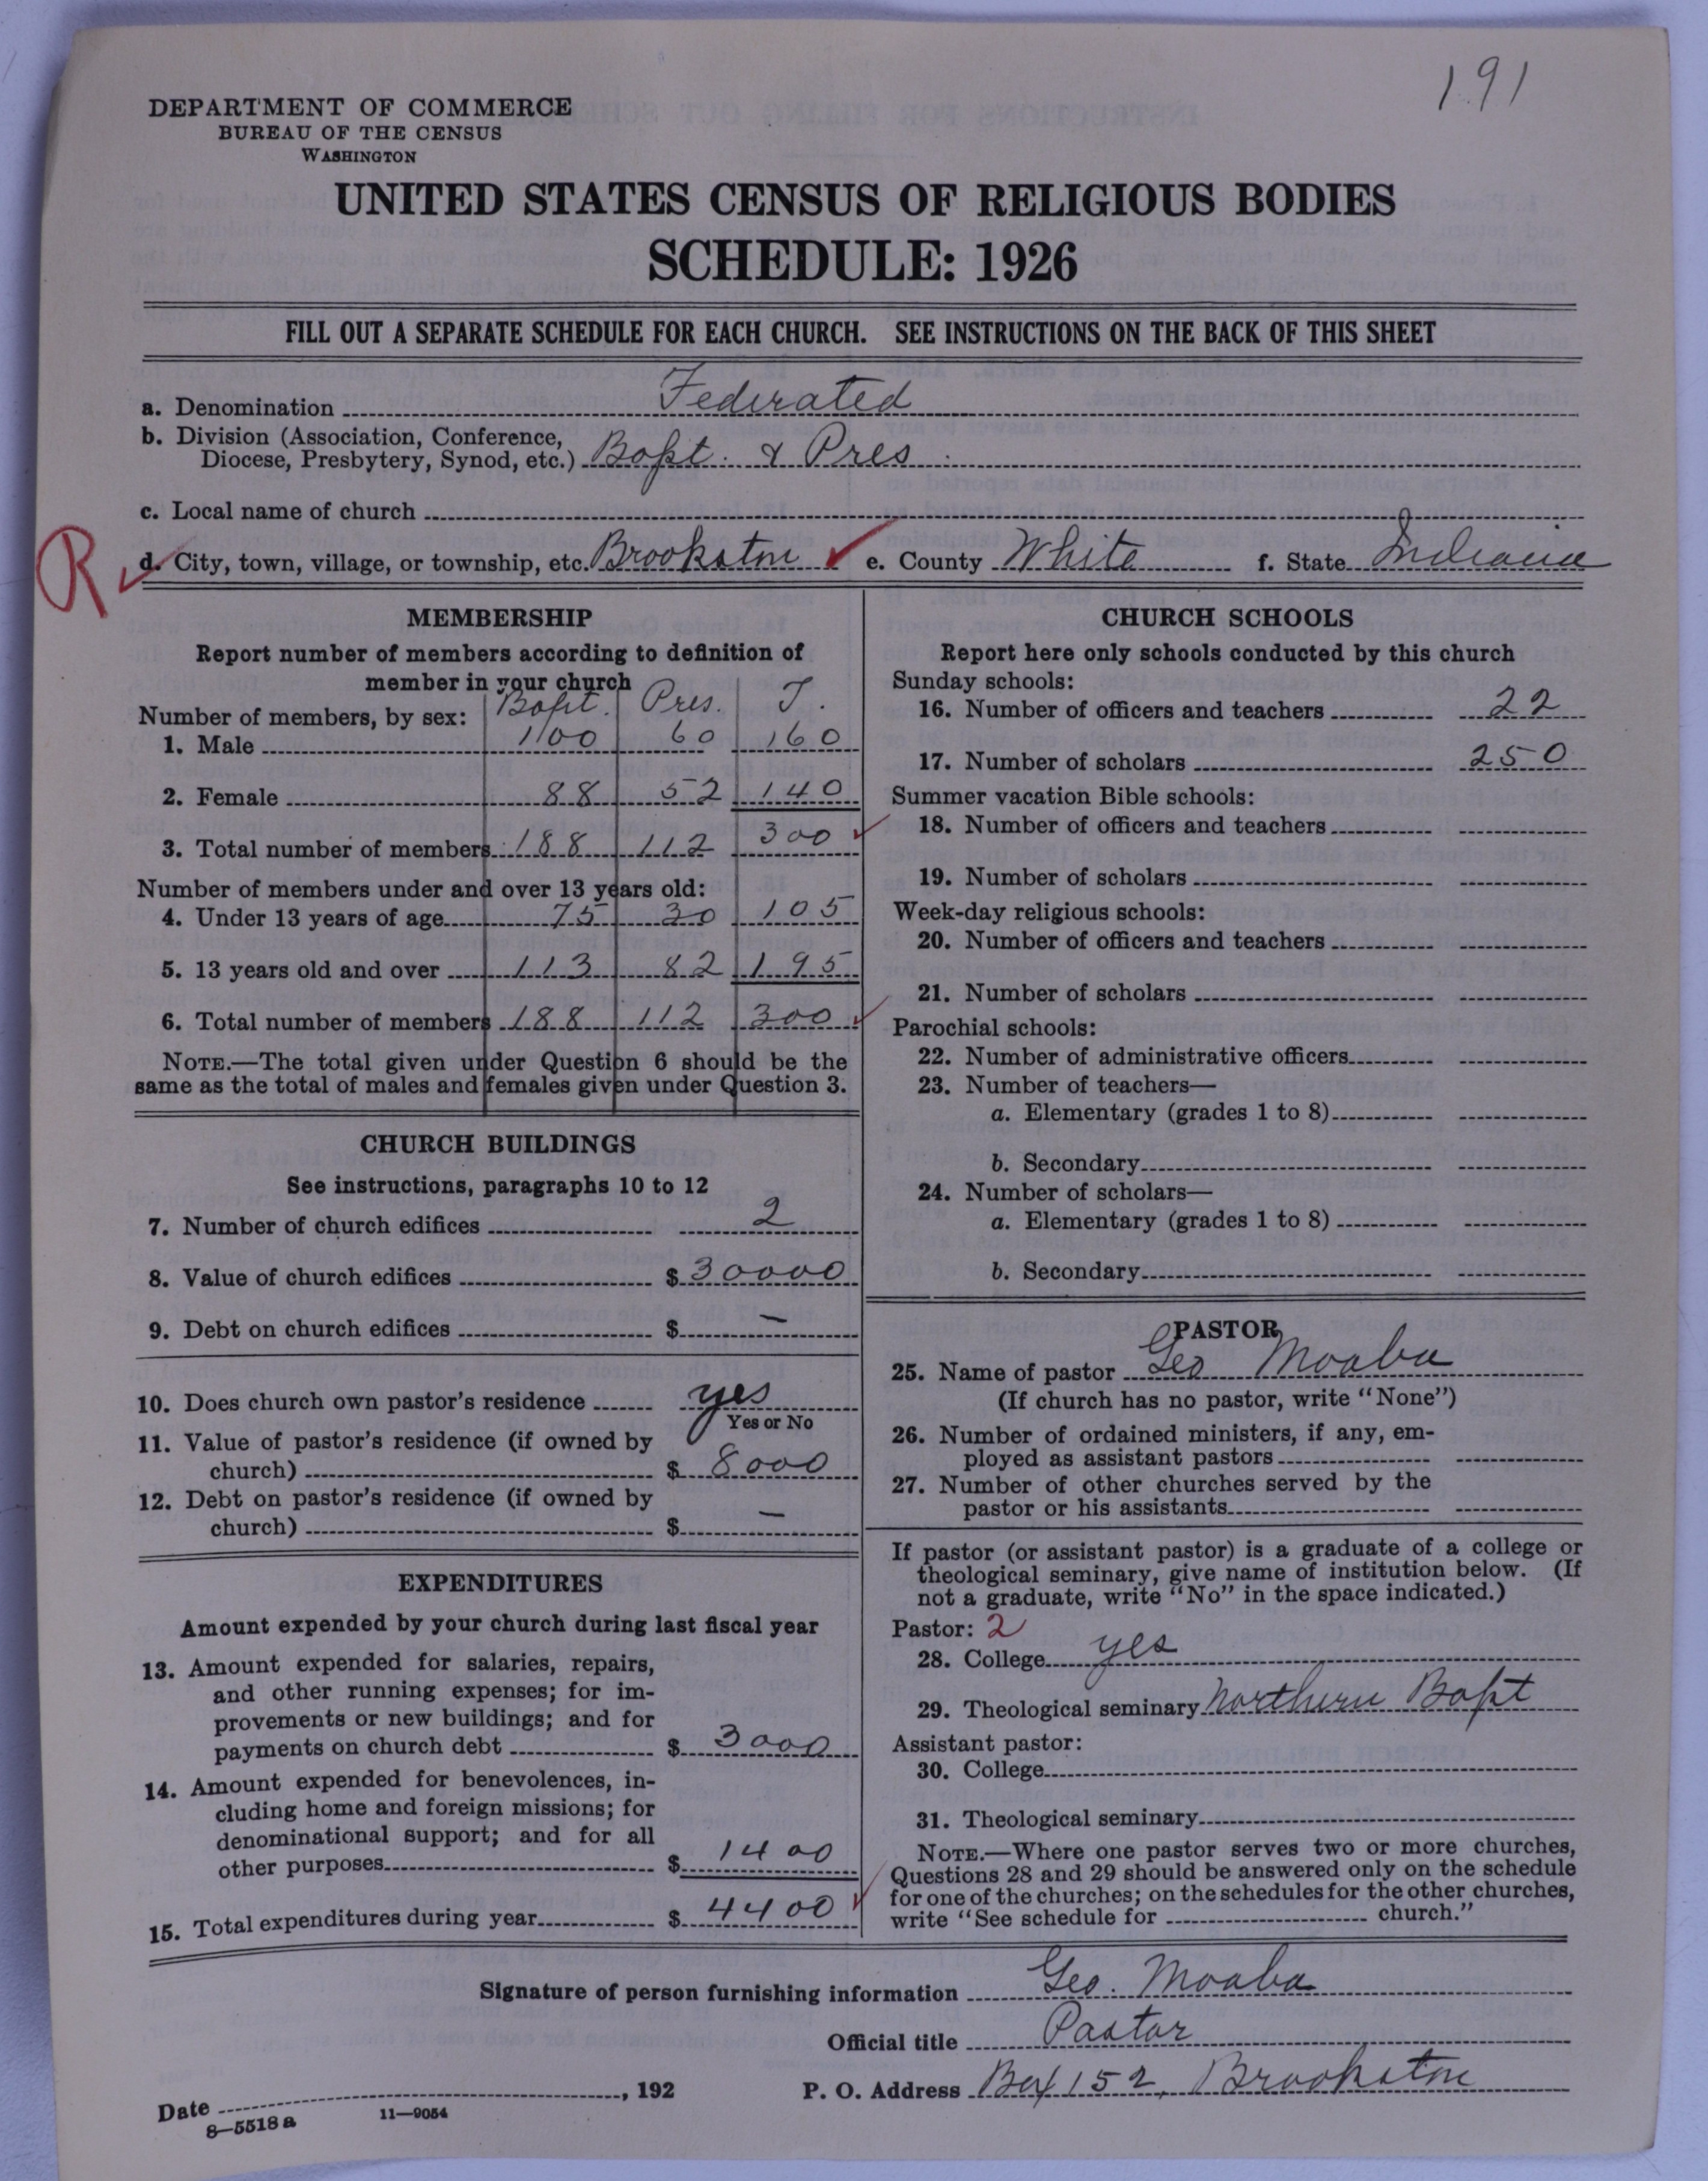 191
DEPARTMENT OF COMMERCE
BUREAU OF THE CENSUS
WASHINGTON
UNITED STATES CENSUS OF RELIGIOUS BODIES
SCHEDULE: 1926
FILL OUT A SEPARATE SCHEDULE FOR EACH CHURCH. SEE INSTRUCTIONS ON THE BACK OF THIS SHEET
a. Denomination Federated
b. Division (Association, Conference,
Diocese, Presbytery, Synod, etc.) Bapt. & Pres
c. Local name of church
R d. City, town, village, or township, etc. Brookston e. County White f. State Indiana
MEMBERSHIP
Report number of members according to definition of
member in your church
Number of members, by sex: Bapt. Pres. T.
1. Male 100 60 160
2. Female 88 52 140
3. Total number of members 188 112 300
Number of members under and over 13 years old:
4. Under 13 years of age 75 30 105
5. 13 years old and over 113 82 195
6. Total number of members 188 112 300
NOTE.—The total given under Question 6 should be the
same as the total of males and females given under Question 3.
CHURCH BUILDINGS
See instructions, paragraphs 10 to 12
7. Number of church edifices 2
8. Value of church edifices $ 30000
9. Debt on church edifices $ —
10. Does church own pastor's residence yes
Yes or No
11. Value of pastor's residence (if owned by
church) $ 8000
12. Debt on pastor's residence (if owned by
church) $ —
EXPENDITURES
Amount expended by your church during last fiscal year
13. Amount expended for salaries, repairs,
and other running expenses; for im-
provements or new buildings; and for
payments on church debt $ 3000
14. Amount expended for benevolences, in-
cluding home and foreign missions; for
denominational support; and for all
other purposes $ 1400
15. Total expenditures during year $ 4400
CHURCH SCHOOLS
Report here only schools conducted by this church
Sunday schools:
16. Number of officers and teachers 22
17. Number of scholars 250
Summer vacation Bible schools:
18. Number of officers and teachers
19. Number of scholars
Week-day religious schools:
20. Number of officers and teachers
21. Number of scholars
Parochial schools:
22. Number of administrative officers
23. Number of teachers—
a. Elementary (grades 1 to 8)
b. Secondary
24. Number of scholars—
a. Elementary (grades 1 to 8)
b. Secondary
PASTOR
25. Name of pastor Geo Moaba
(If church has no pastor, write "None")
26. Number of ordained ministers, if any, em-
ployed as assistant pastors
27. Number of other churches served by the
pastor or his assistants
If pastor (or assistant pastor) is a graduate of a college or
theological seminary, give name of institution below. (If
not a graduate, write "No" in the space indicated.)
Pastor: 2
28. College yes
29. Theological seminary Northern Bapt
Assistant pastor:
30. College
31. Theological seminary
NOTE.—Where one pastor serves two or more churches,
Questions 28 and 29 should be answered only on the schedule
for one of the churches; on the schedules for the other churches,
write "See schedule for church."
Signature of person furnishing information Geo. Moaba
Official title Pastor
Date , 192 P. O. Address Box 152, Brookston
8—5518 a 11—9054